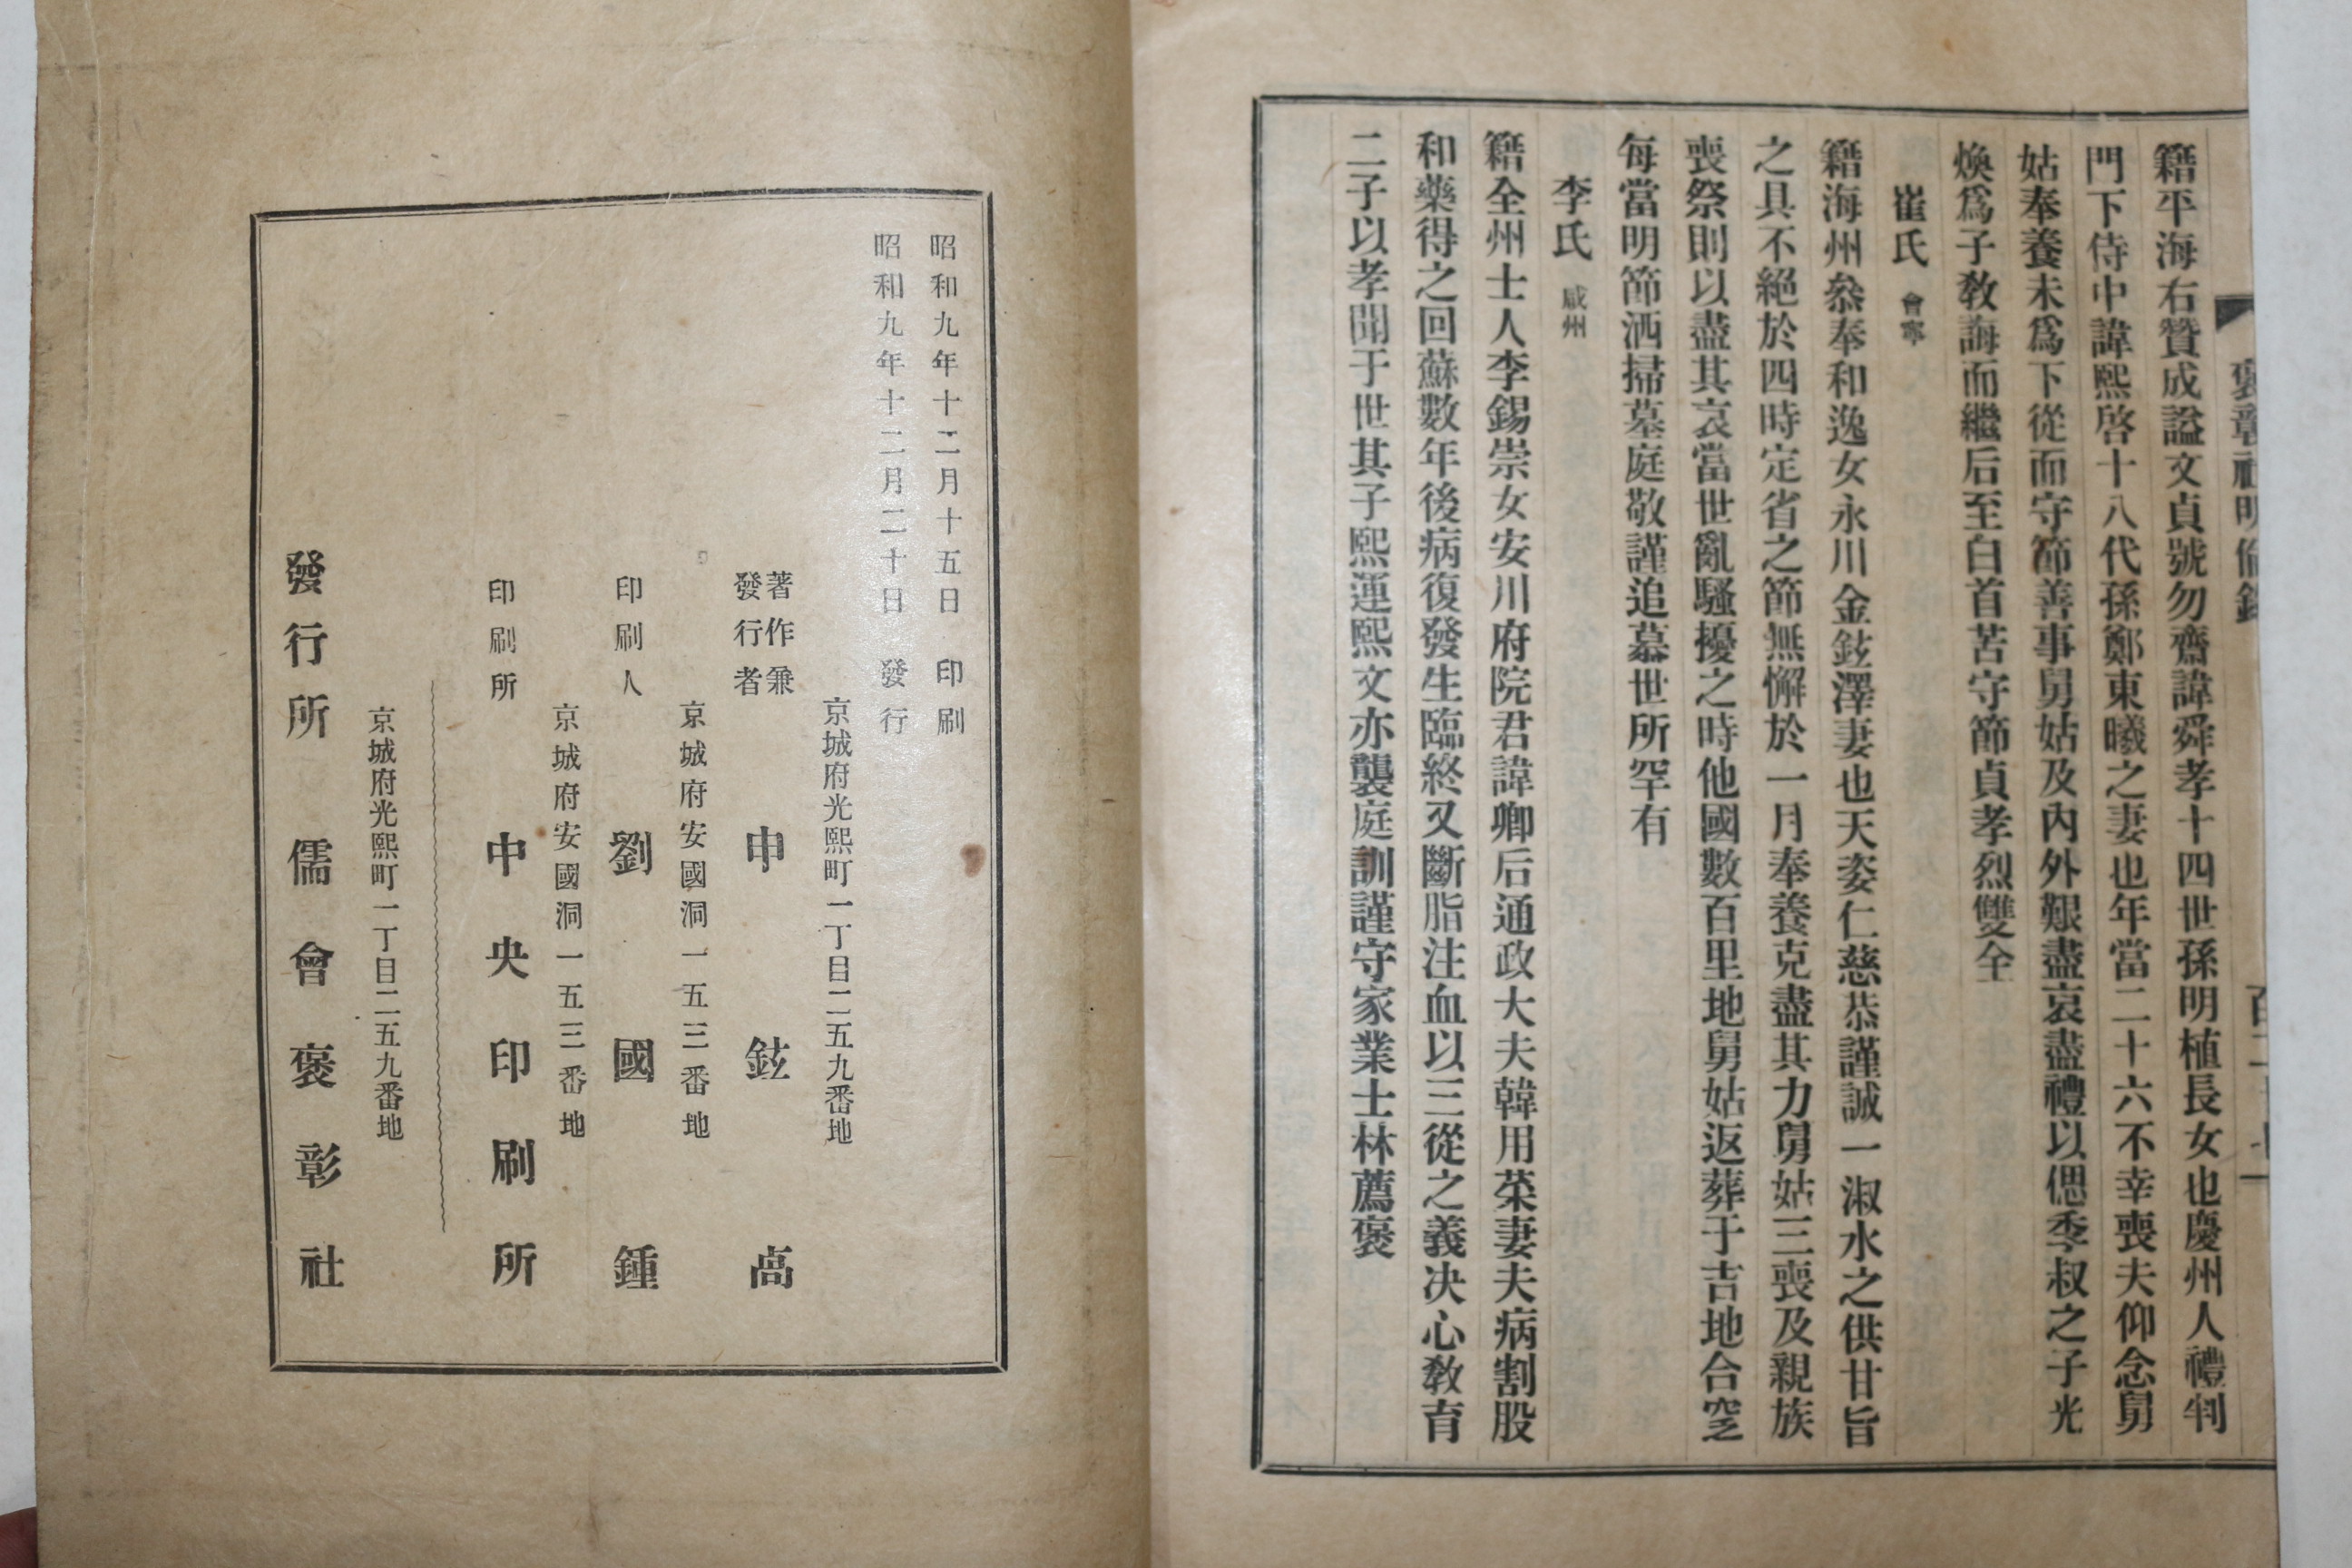 褒彰社明倫錄
籍平海右贊成諡文貞號勿齋諱舜孝十四世孫明植長女也慶州人禮判
門下侍中諱熙啓十八代孫鄭東曦之妻也年當二十六不幸喪夫仰念舅
姑奉養未爲下從而守節善事舅姑及內外艱盡哀盡禮以偲季叔之子光
煥爲子敎誨而繼后至白首苦守節貞孝烈雙全
崔氏 會寧
籍海州叅奉和逸女永川金鉉澤妻也天姿仁慈恭謹誠一淑水之供甘旨
之具不絕於四時定省之節無懈於一月奉養克盡其力舅姑三喪及親族
喪祭則以盡其哀當世亂騷擾之時他國數百里地舅姑返葬于吉地合窆
每當明節洒掃墓庭敬謹追慕世所罕有
李氏 咸州
籍全州士人李錫崇女安川府院君諱卿后通政大夫韓用菜妻夫病割股
和藥得之回蘇數年後病復發生臨終又斷脂注血以三從之義决心敎育
二子以孝聞于世其子熙運熙文亦襲庭訓謹守家業士林薦褒
昭和九年十二月十五日 印刷
昭和九年十二月二十日 發行
京城府光熙町一丁目二五九番地
著作兼
發行者 申鉉卨
京城府安國洞一五三番地
印刷人 劉國鍾
京城府安國洞一五三番地
印刷所 中央印刷所
京城府光熙町一丁目二五九番地
發行所 儒會褒彰社